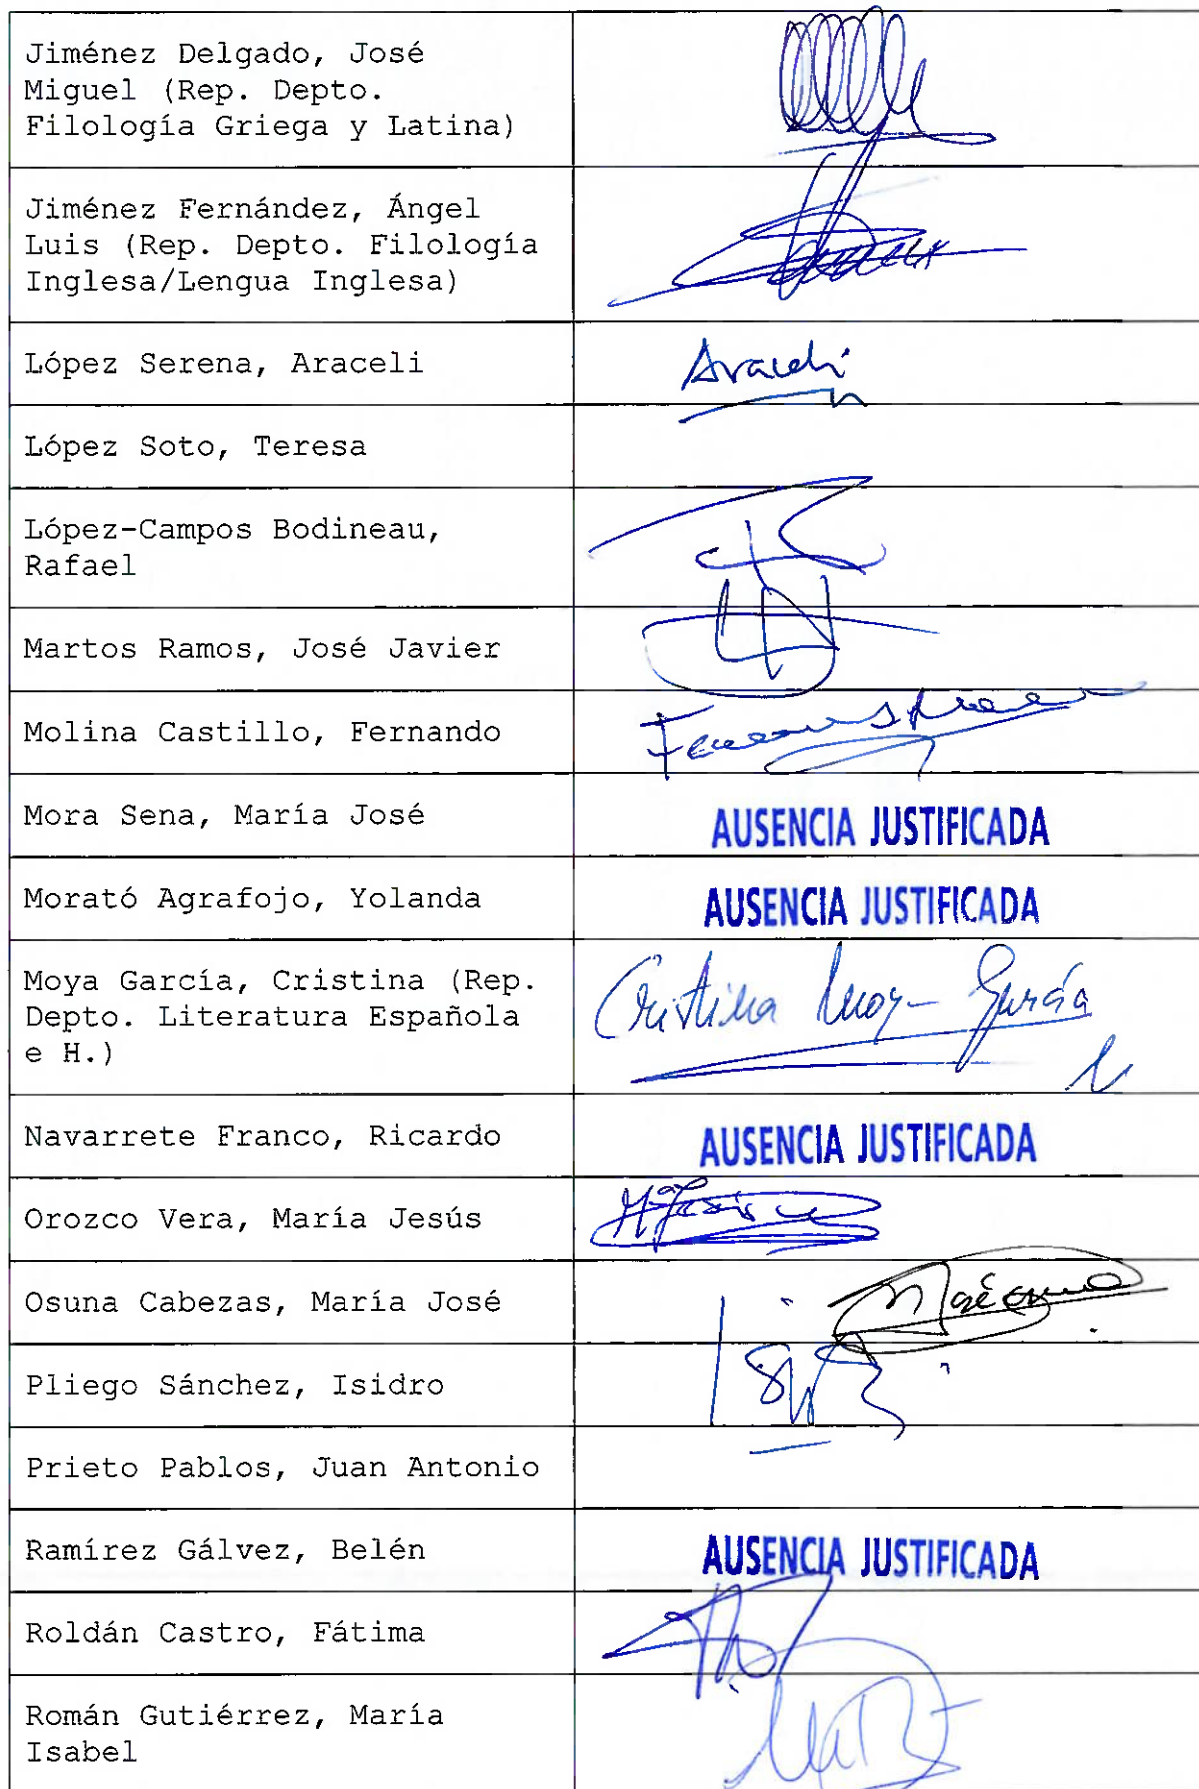 Jiménez Delgado, José
Miguel (Rep. Depto.
Filología Griega y Latina)
Jiménez Fernández, Ángel
Luis (Rep. Depto. Filología
Inglesa/Lengua Inglesa)
López Serena, Araceli
Araceli
López Soto, Teresa
López-Campos Bodineau,
Rafael
Martos Ramos, José Javier
Molina Castillo, Fernando
Mora Sena, María José
AUSENCIA JUSTIFICADA
Morató Agrafojo, Yolanda
AUSENCIA JUSTIFICADA
Moya García, Cristina (Rep.
Depto. Literatura Española
e H.)
Cristina Moya García
Navarrete Franco, Ricardo
AUSENCIA JUSTIFICADA
Orozco Vera, María Jesús
Osuna Cabezas, María José
Pliego Sánchez, Isidro
Prieto Pablos, Juan Antonio
Ramírez Gálvez, Belén
AUSENCIA JUSTIFICADA
Roldán Castro, Fátima
Román Gutiérrez, María
Isabel